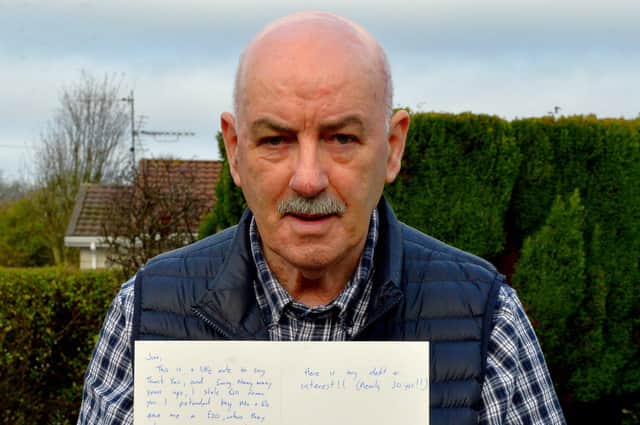 John,
This is a little note to say
Thank You, and Sorry. Many, many
years ago, I stole £10 from
you. I pretended they
gave me a £20, when they
Here is my debt +
interest!! (Nearly 30 yrs!!)